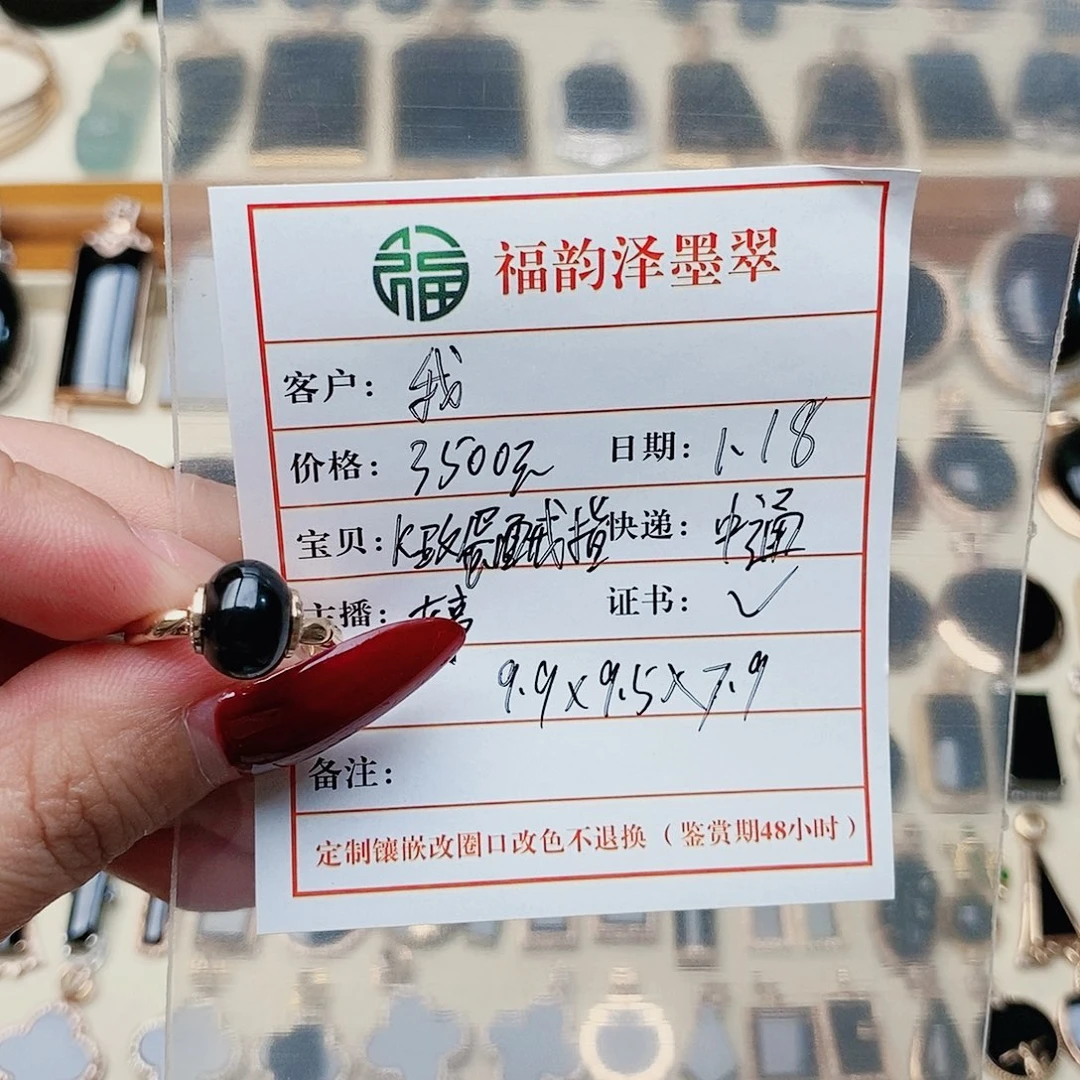 福 福韵泽墨翠
客户：我
价格：3500元 日期：1.18
宝贝：K金蛋面戒指 快递：中通
主播： 证书：✓
9.9x9.5x7.9
备注：
定制镶嵌改圈口改色不退换（鉴赏期48小时）